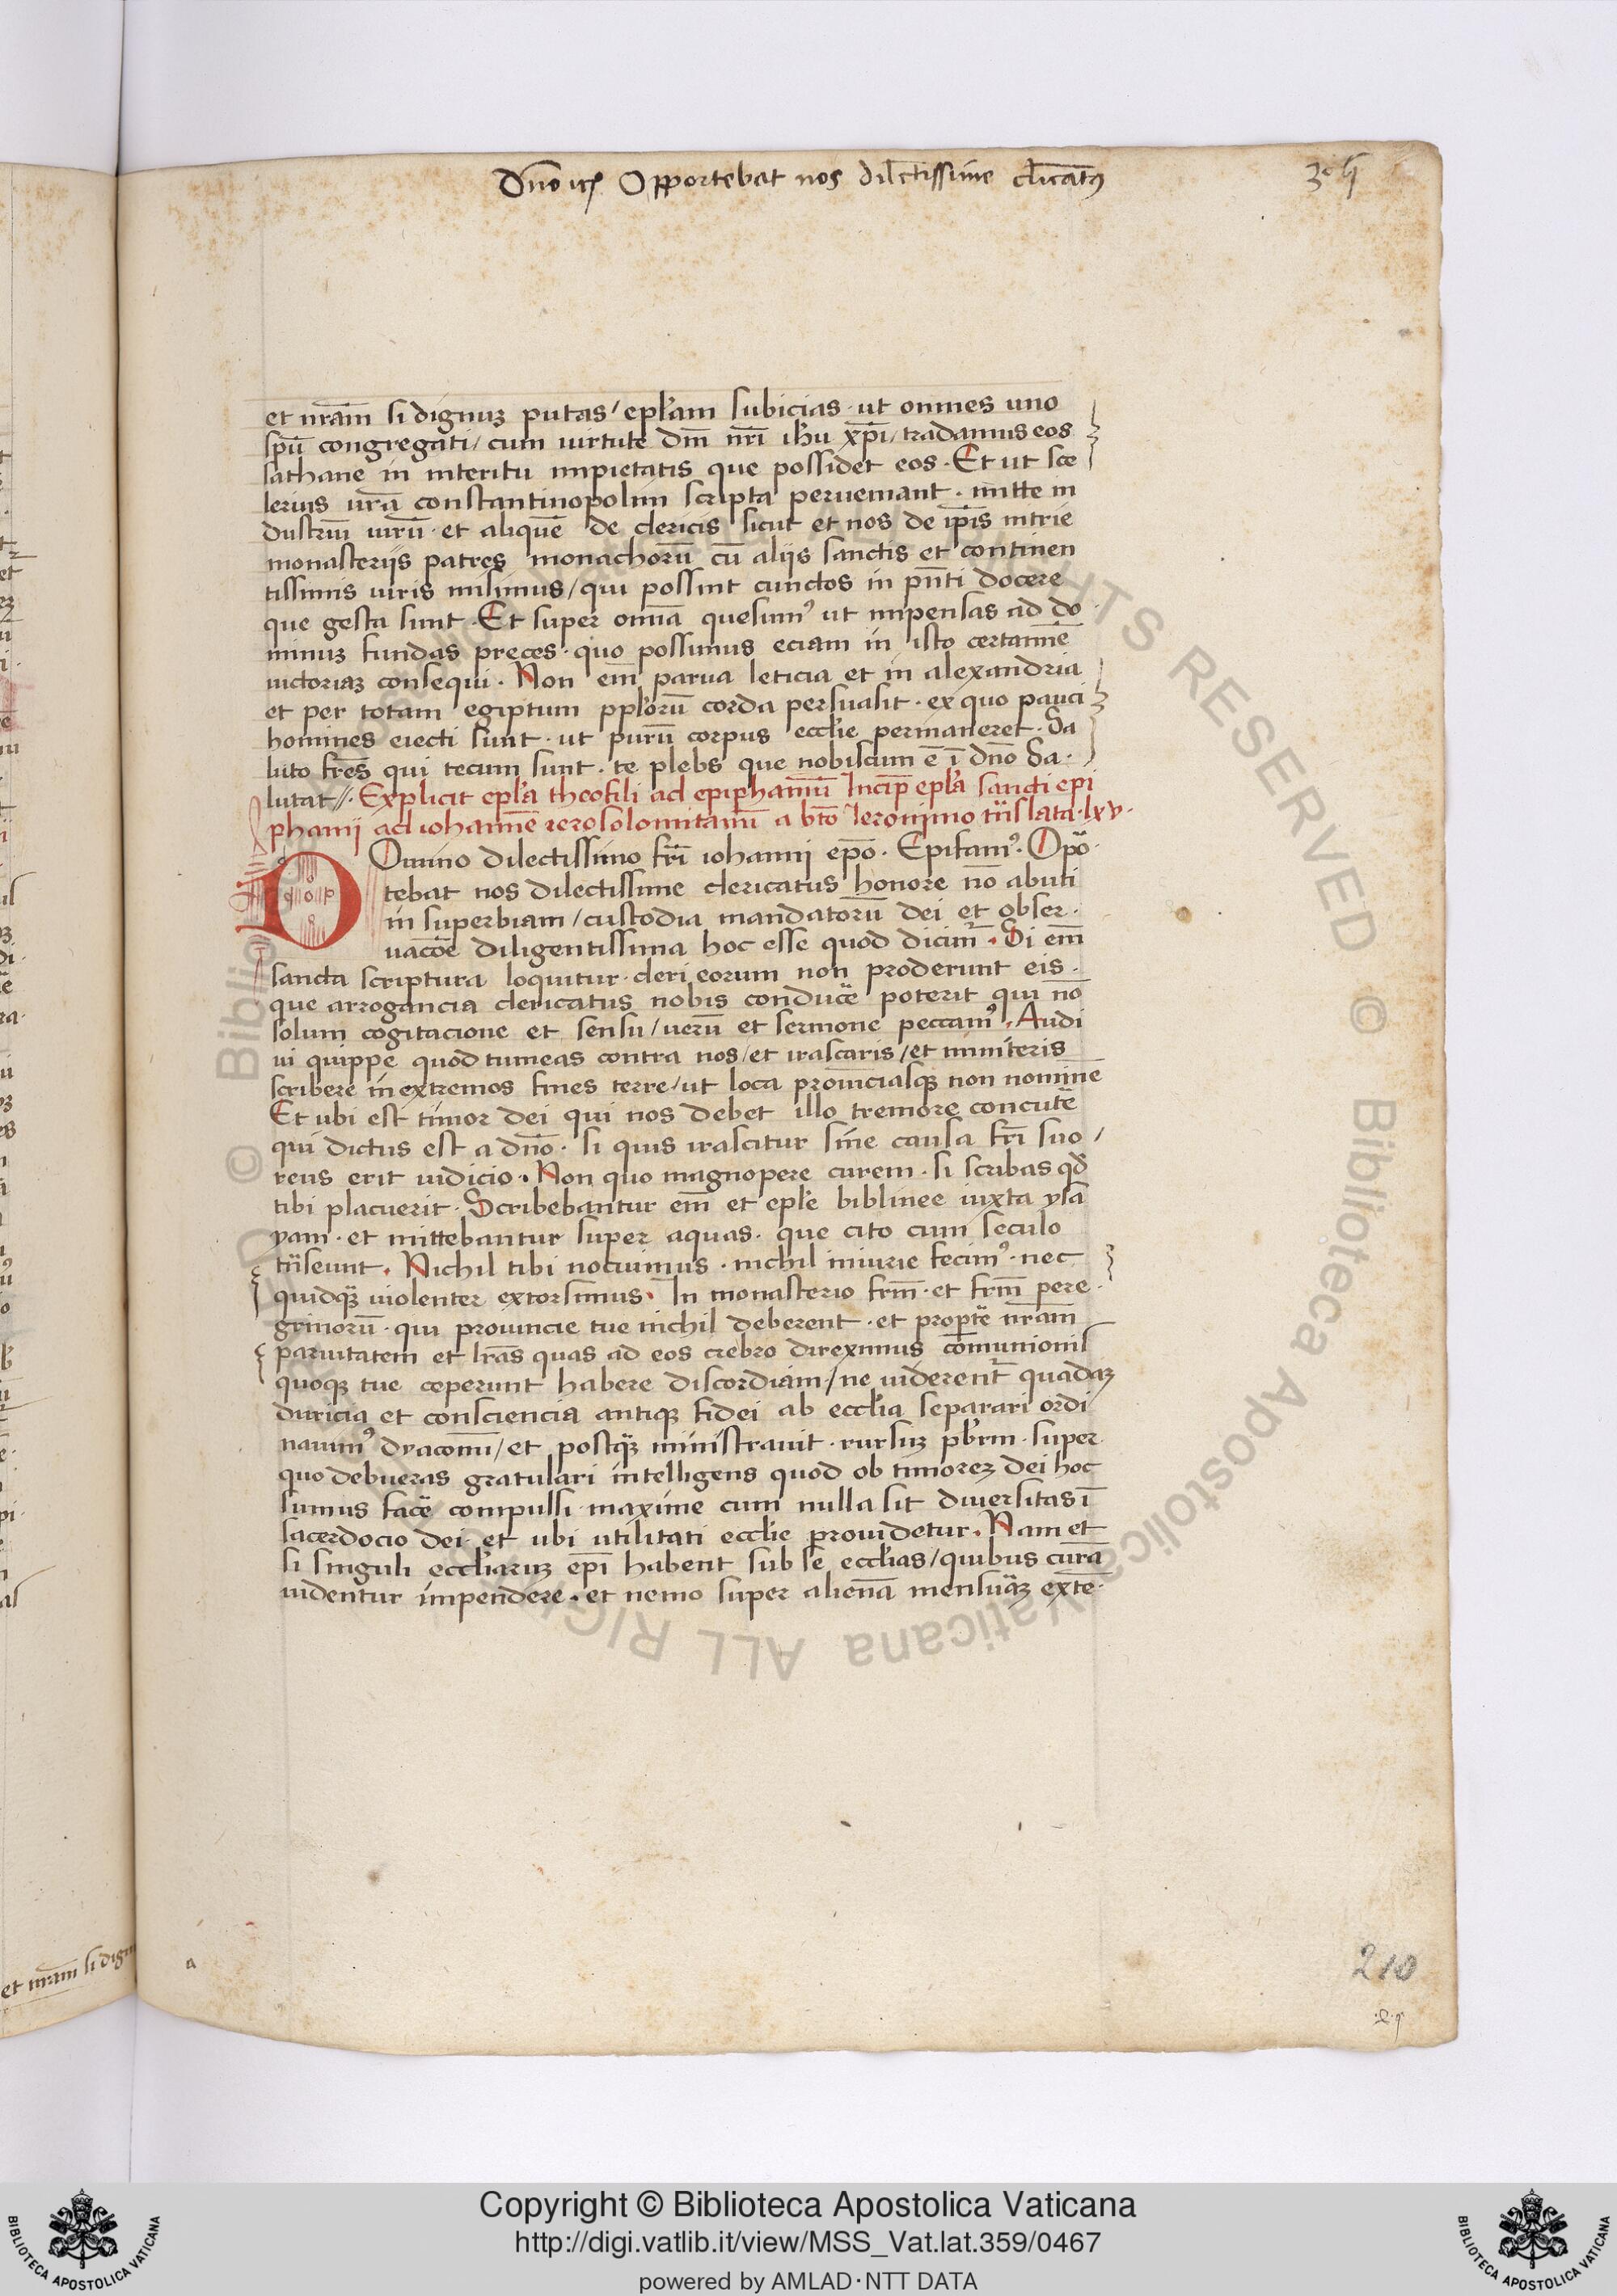 Dn̄o ⁊c. Opportebat nos dilectissime cl̄icatꝰ
et nr̄am si dignuꝫ putas / epl̄am subicias · ut omnes uno
sp̄u congregati / cum uirtute dn̄i nr̄i ih̄u xp̄i / tradamus eos
sathane in interitu impietatis que possidet eos · Et ut sce
lerius ur̄a constantinopolim scripta perueniant · mitte in
dustriū uirū · et aliquē de clericis sicut et nos de ip̄is nitrie
monasterijs patres monachorū cū alijs sanctis et continen
tissimis uiris misimus / qui possint cunctos in pn̄ti docere
que gesta sunt · Et super omīa quesumꝰ ut impensas ad do
minuꝫ fundas preces · quo possimus eciam in isto certamīe
uictoriaꝫ consequi · Non em̄ parua leticia et in alexandria
et per totam egiptum ppl̄orū corda persuasit · ex quo pauci
homines eiecti sunt · ut purū corpus eccl̄ie permaneret · Sa
luto fr̄es qui tecum sunt · te plebs que nobiscum ē ī dn̄o Sa ·
lutat // · Explicit epl̄a theofili ad epiphaniū Incip̄ epl̄a sancti epi
phanij ad iohannē ierosolomitanū a bt̄o Ieronimo tn̄slata · lxv ·
DOmino dilectissimo fr̄i iohanni ep̄o · Epifanꝰ · Opō ·
tebat nos dilectissime clericatus honore nō abuti
in superbiam / custodia mandatorū dei et obser ·
uacōe diligentissima hoc esse quod dicim̄ · Si em̄
sancta scriptura loquitur · cleri eorum non proderunt eis ·
que arrogancia clericatus nobis conducē poterit qui nō
solum cogitacione et sensu / uerū et sermone peccamꝰ · Audi
ui quippe quod tumeas contra nos / et irascaris / et miniteris
scribere in extremos fines terre / ut loca prouinciasqꝫ non nomine
Et ubi est timor dei qui nos debet illo tremore concutē
qui dictus est a dn̄o · si quis irascitur sine causa fr̄i suo /
reus erit iudicio · Non quo magnopere curem · si scribas qd̄
tibi placuerit · Scribebantur em̄ et epl̄e biblinee iuxta ysa
yam · et mittebantur super aquas · que cito cum seculo
tn̄seunt · Nichil tibi nocuimus · nichil iniurie fecimꝰ · nec
quidqꝫ uiolenter extorsimus · In monasterio fr̄m · et fr̄m pere ·
grinorū · qui prouincie tue nichil deberent · et proptē nr̄am
paruitatem et lr̄as quas ad eos crebro direximus com̄unionis
quoqꝫ tue ceperunt habere discordiam / ne uiderent̄ quadaꝫ
duricia et consciencia antiqꝫ fidei ab eccl̄ia separari ordi
nauimꝰ dyaconū / et postqꝫ ministrauit · rursuꝫ pb̄rm · super
quo debueras gratulari intelligens quod ob timoreꝫ dei hoc
sumus facē compulsi · maxime cum nulla sit diuersitas ī
sacerdocio dei · et ubi utilitati eccl̄ie prouidetur · Nam et
si singuli eccl̄iaruꝫ ep̄i habent sub se eccl̄ias / quibus curā
uidentur impendere · et nemo super alienā mensurāꝫ extē ·
a
210
et nr̄am si dign
Copyright © Biblioteca Apostolica Vaticana
http://digi.vatlib.it/view/MSS_Vat.lat.359/0467
powered by AMLAD·NTT DATA
BIBLIOTECA APOSTOLICA VATICANA
BIBLIOTECA APOSTOLICA VATICANA
© Biblioteca Apostolica Vaticana ALL RIGHTS RESERVED